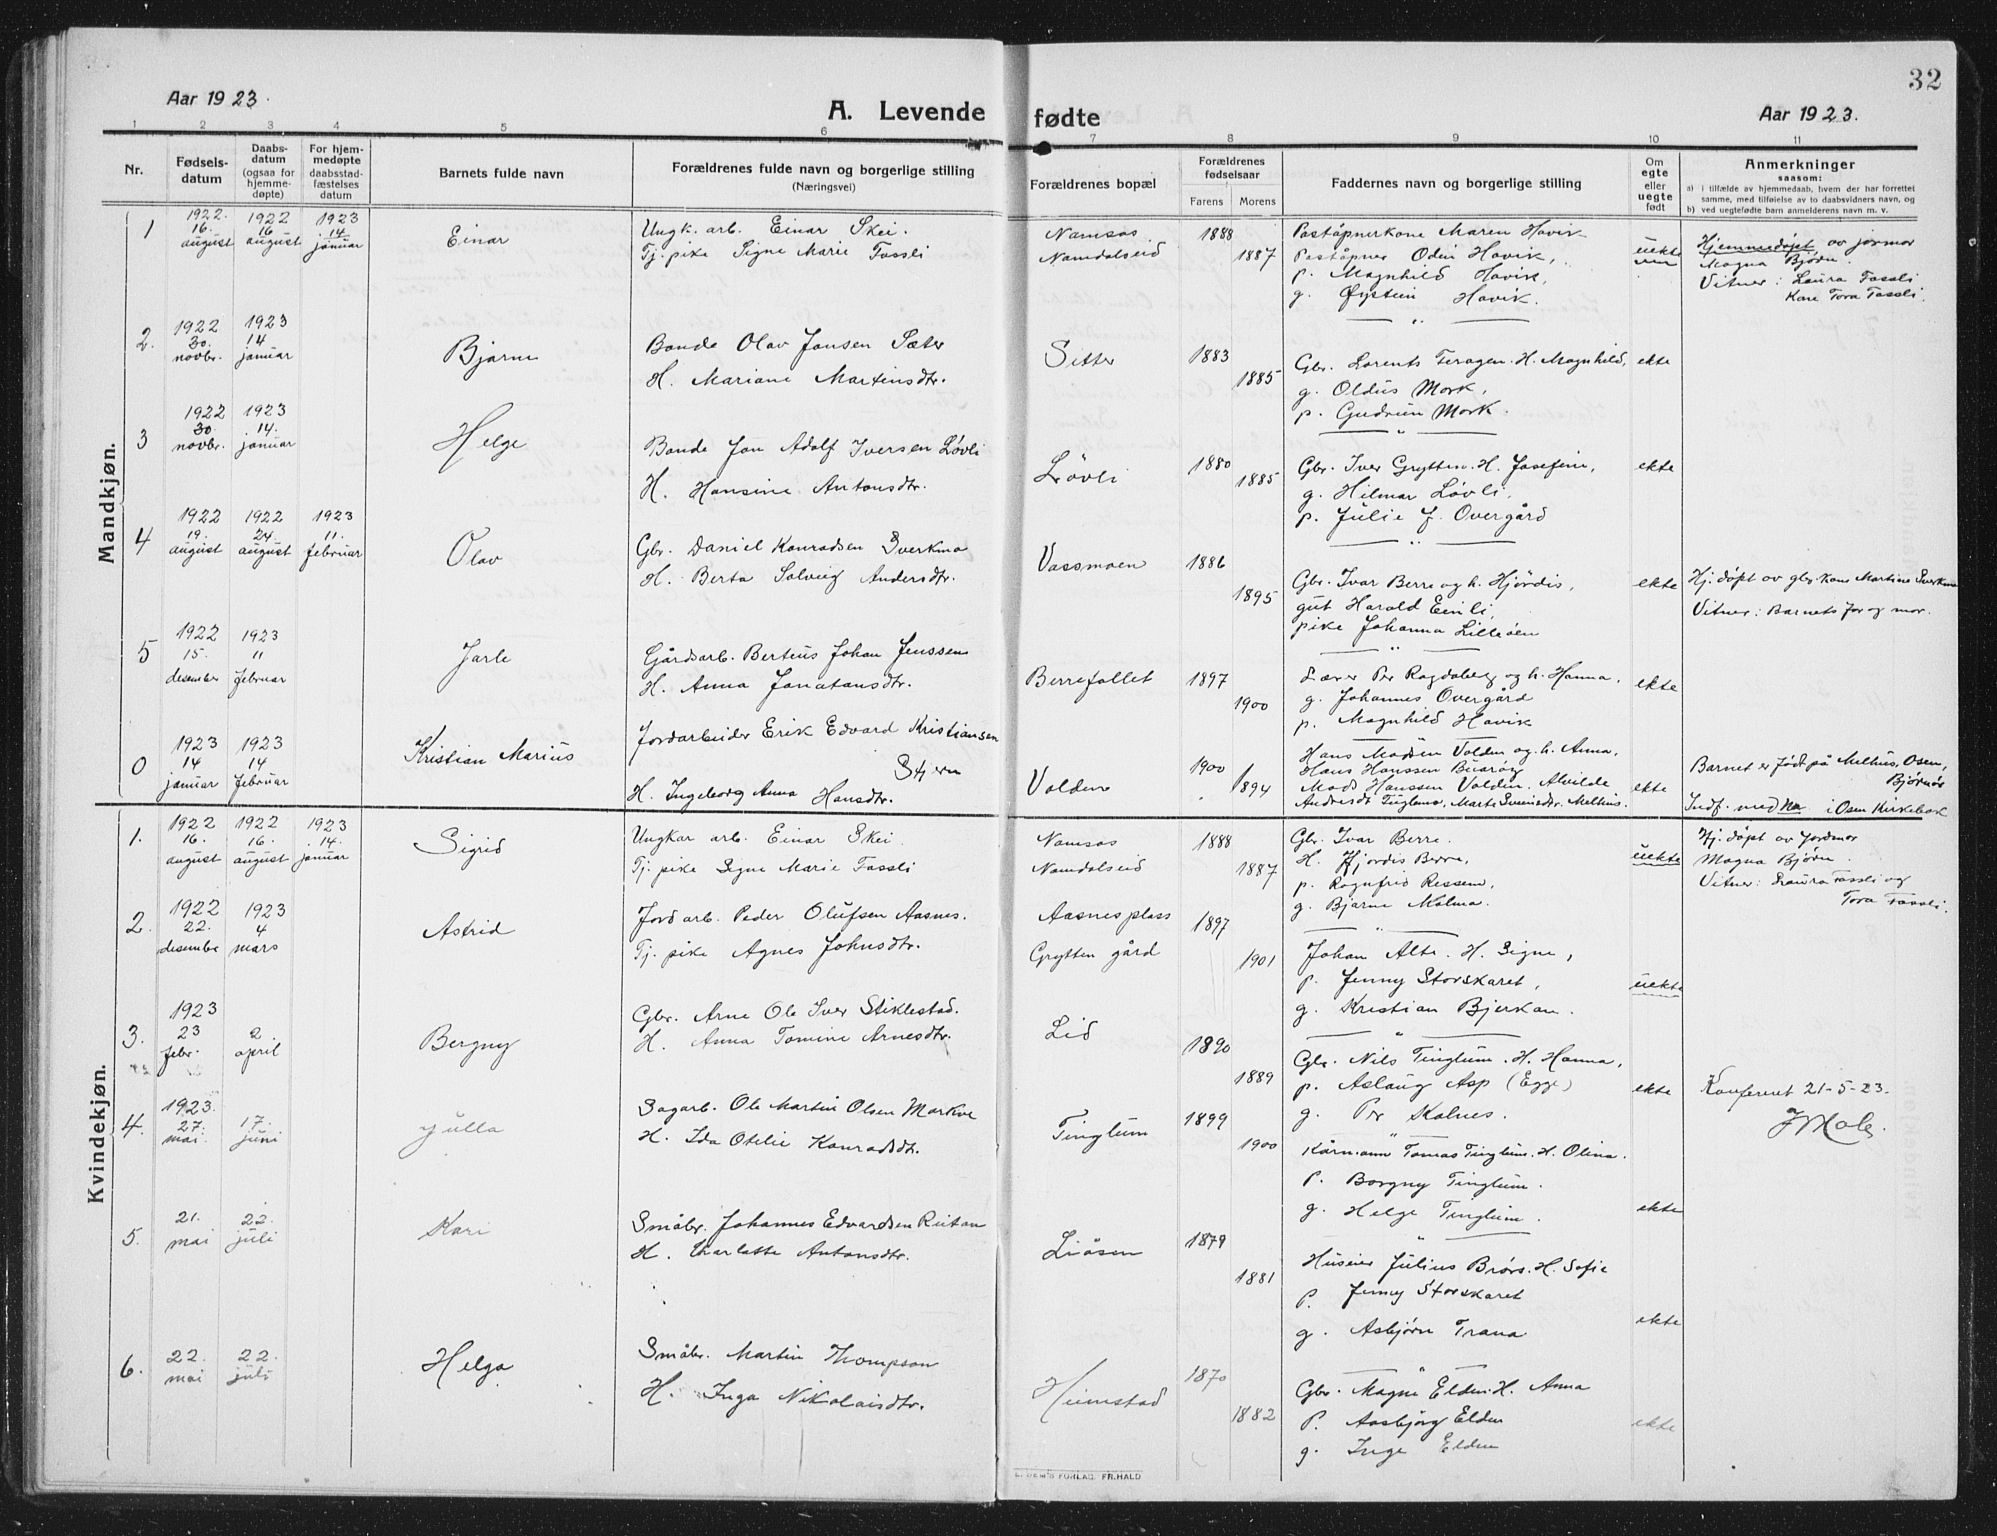 32
Aar 1923.
A. Levende fødte
Aar 1923.
1 2 3 4 5 6 7 8 9 10 11
Nr.
Fødsels-
datum
Daabs-
datum
(ogsaa for
hjemme-
døpte)
For hjem-
medøpte
daabsstad-
fæstelses
datum
Barnets fulde navn
Forældrenes fulde navn og borgerlige stilling
(Næringsvei)
Forældrenes bopæl
Forældrenes
fødselsaar
Farens Morens
Faddernes navn og borgerlige stilling
Om
egte
eller
uegte
født
Anmerkninger
saasom:
a) i tilfælde av hjemmedaab, hvem der har forrettet
samme, med tilføielse av to daabsvidners navn, og
b) ved uegtefødte barn anmelderens navn m. v.
Mandkjøn.
1
1922.
16.
august
1922
16
august
1923
14
januar
Einar
Ungk. arb. Einar Skei.
Tj. pike Signe Marie Fossli
Namsos
Namdalseid
1888
1887
Poståpnerkone Maren Hovik
Poståpner Odin Hovik,
p. Magnhild Hovik,
g. Øystein Hovik.
uekte
Hjemmedøpt av jormor
Magna Bjørn.
Vitner: Laura Fossli
Kone Tora Fossli.
2.
1922
30.
novbr.
1923
14
januar
Bjarne
Bonde Olav Jonsen Sæter
H. Mariane Martinsdtr.
Sitter
1883
1885
Gbr. Lorents Feragen. H. Magnhild,
g. Oldus Mork,
p. Gudrun Mork.
ekte
3
1922
30
novbr.
1923
14.
januar
Helge
Bonde Jon Adolf Iversen Løvli
H. Hansine Antonsdtr.
Løvli
1880
1885
Gbr. Iver Grytten. H. Josefine,
g. Hilmar Løvli,
p. Julie J. Overgård
ekte
4
1922
19.
august
1922
24
august
1923
11.
februar
Olav
Gbr. Daniel Konradsen Sverkmo
H. Berta Solveig Andersdtr.
Vassmoen
1886
1895
Gbr. Ivar Berre og h. Hjørdis,
gut Harald Einli,
pike Johanna Lilleøen
ekte
Hj. døpt av gbr. kone Martine Sverkmo
Vitner: Barnets far og mor.
5
1922
15.
desember
1923
11
februar
Jarle
Gårdsarb. Berteus Johan Jenssen
H. Anna Jonatansdtr.
Berrefallet
1897
1900
Lærer Per Rogdaberg og h. Hanna.
g. Johannes Overgård
p. Magnhild Hovik
ekte
0
1923
14
januar
1923
14
februar
Kristian Marius
Jordarbeider Erik Edvard Kristiansen
Stjern
H. Ingeborg Anna Hansdtr.
Volden
1900
1894
Hans Madsen Volden og h. Anna.
Hans Hanssen Buarøy
Mads Hanssen Volden. Alvilde
Andersdr Tuglemo, Marte Sveinsdtr. Melhus.
ekte
Barnet er født på Melhus, Osen,
Bjørnør
Indf. med No i Osen Kirkebok
Kvindekjøn.
1.
1922
16.
august
1922
16.
august
1923
14.
januar
Sigrid
Ungkar arb. Einar Skei
Tj. pike Signe Marie Fossli
Namsos
Namdalseid
1888
1887
Gbr. Ivar Berre.
H. Hjordis Berre,
p. Ragnfrid Ressem,
g. Bjarne Malmo.
uekte
Hj. døpt av Jordmor
Magna Bjørn.
Vitner: Laura Fossli og
Tora Fossli.
2.
1922
22.
desember
1923
4
mars
Astrid
Jord arb. Peder Olufsen Aasnes.
Tj. pike Agnes Johnsdtr.
Aasnesplass
Grytten gård
1897
1901
Johan Alte. H. Signe,
p. Jenny Storskaret,
g. Kristian Bjerkan.
uekte
3.
1923
23
febr.
2
april
Bergny
Gbr. Arne Ole Iver Stiklestad.
H. Anna Tomine Arnesdtr.
Lid
1890
1889
Gbr. Nils Tinglum. H. Hanna,
p. Aslaug Asp (Egge)
g. Per Skalnes.
ekte
Konferert 21-5-23.
4.
1923.
27.
mai
17.
juni
Julla
Sagarb. Ole Martin Olsen Markve
H. Ida Otelie Konradsdtr.
Tinglum
1899
1900
Kårmann Tomas Tinglum. H. Olina.
P. Borgny Tinglum.
g. Helge Tinglum.
ekte
5.
21.
mai
22.
juli
Kari
Småbr. Johannes Edvardsen Ruten
H. Charlotte Antonsdtr.
Liåsen
1879
1881
Huseier Julius Brørs. H. Sofie
P. Jenny Storskaret
g. Asbjørn Trana
ekte
6.
22.
mai
22.
juli
Helga
Småbr. Martin Thompson
H. Inga Nikolaisdtr.
Heimstad
1870
1882
Gbr. Magne Elden. H. Anna
P. Aasbjørg Elden
g. Inge Elden
ekte
FORLAG. FR. HALD